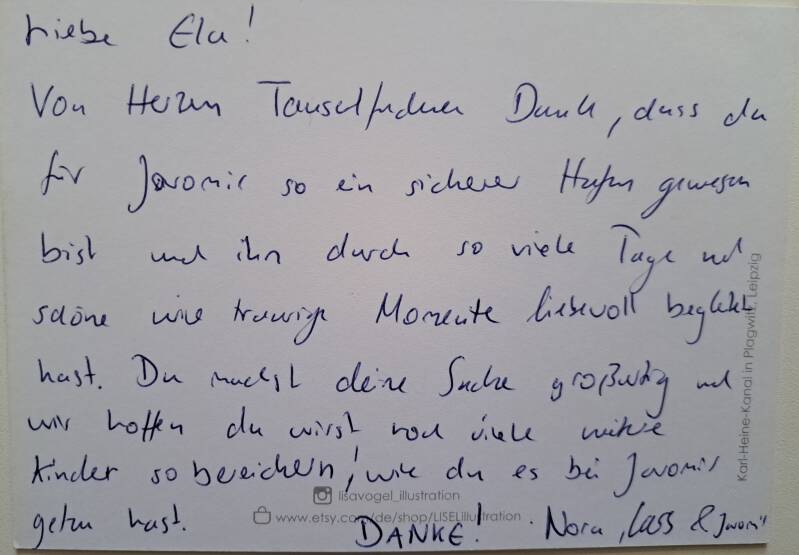 Liebe Ela!
Von Herzen Tausendfachen Dank, dass du
für Jaromir so ein sicherer Hafen gewesen
bist und ihn durch so viele Tage und
schöne wie traurige Momente liebevoll begleitet
hast. Du machst deine Sache großartig und
wir hoffen du wirst noch viele weitere
Kinder so bereichern, wie du es bei Jaromir
getan hast.
DANKE! Nora, Lass & Jaromir
lisavogel_illustration
www.etsy.com/de/shop/LISELillustration
Karl-Heine-Kanal in Plagwitz, Leipzig